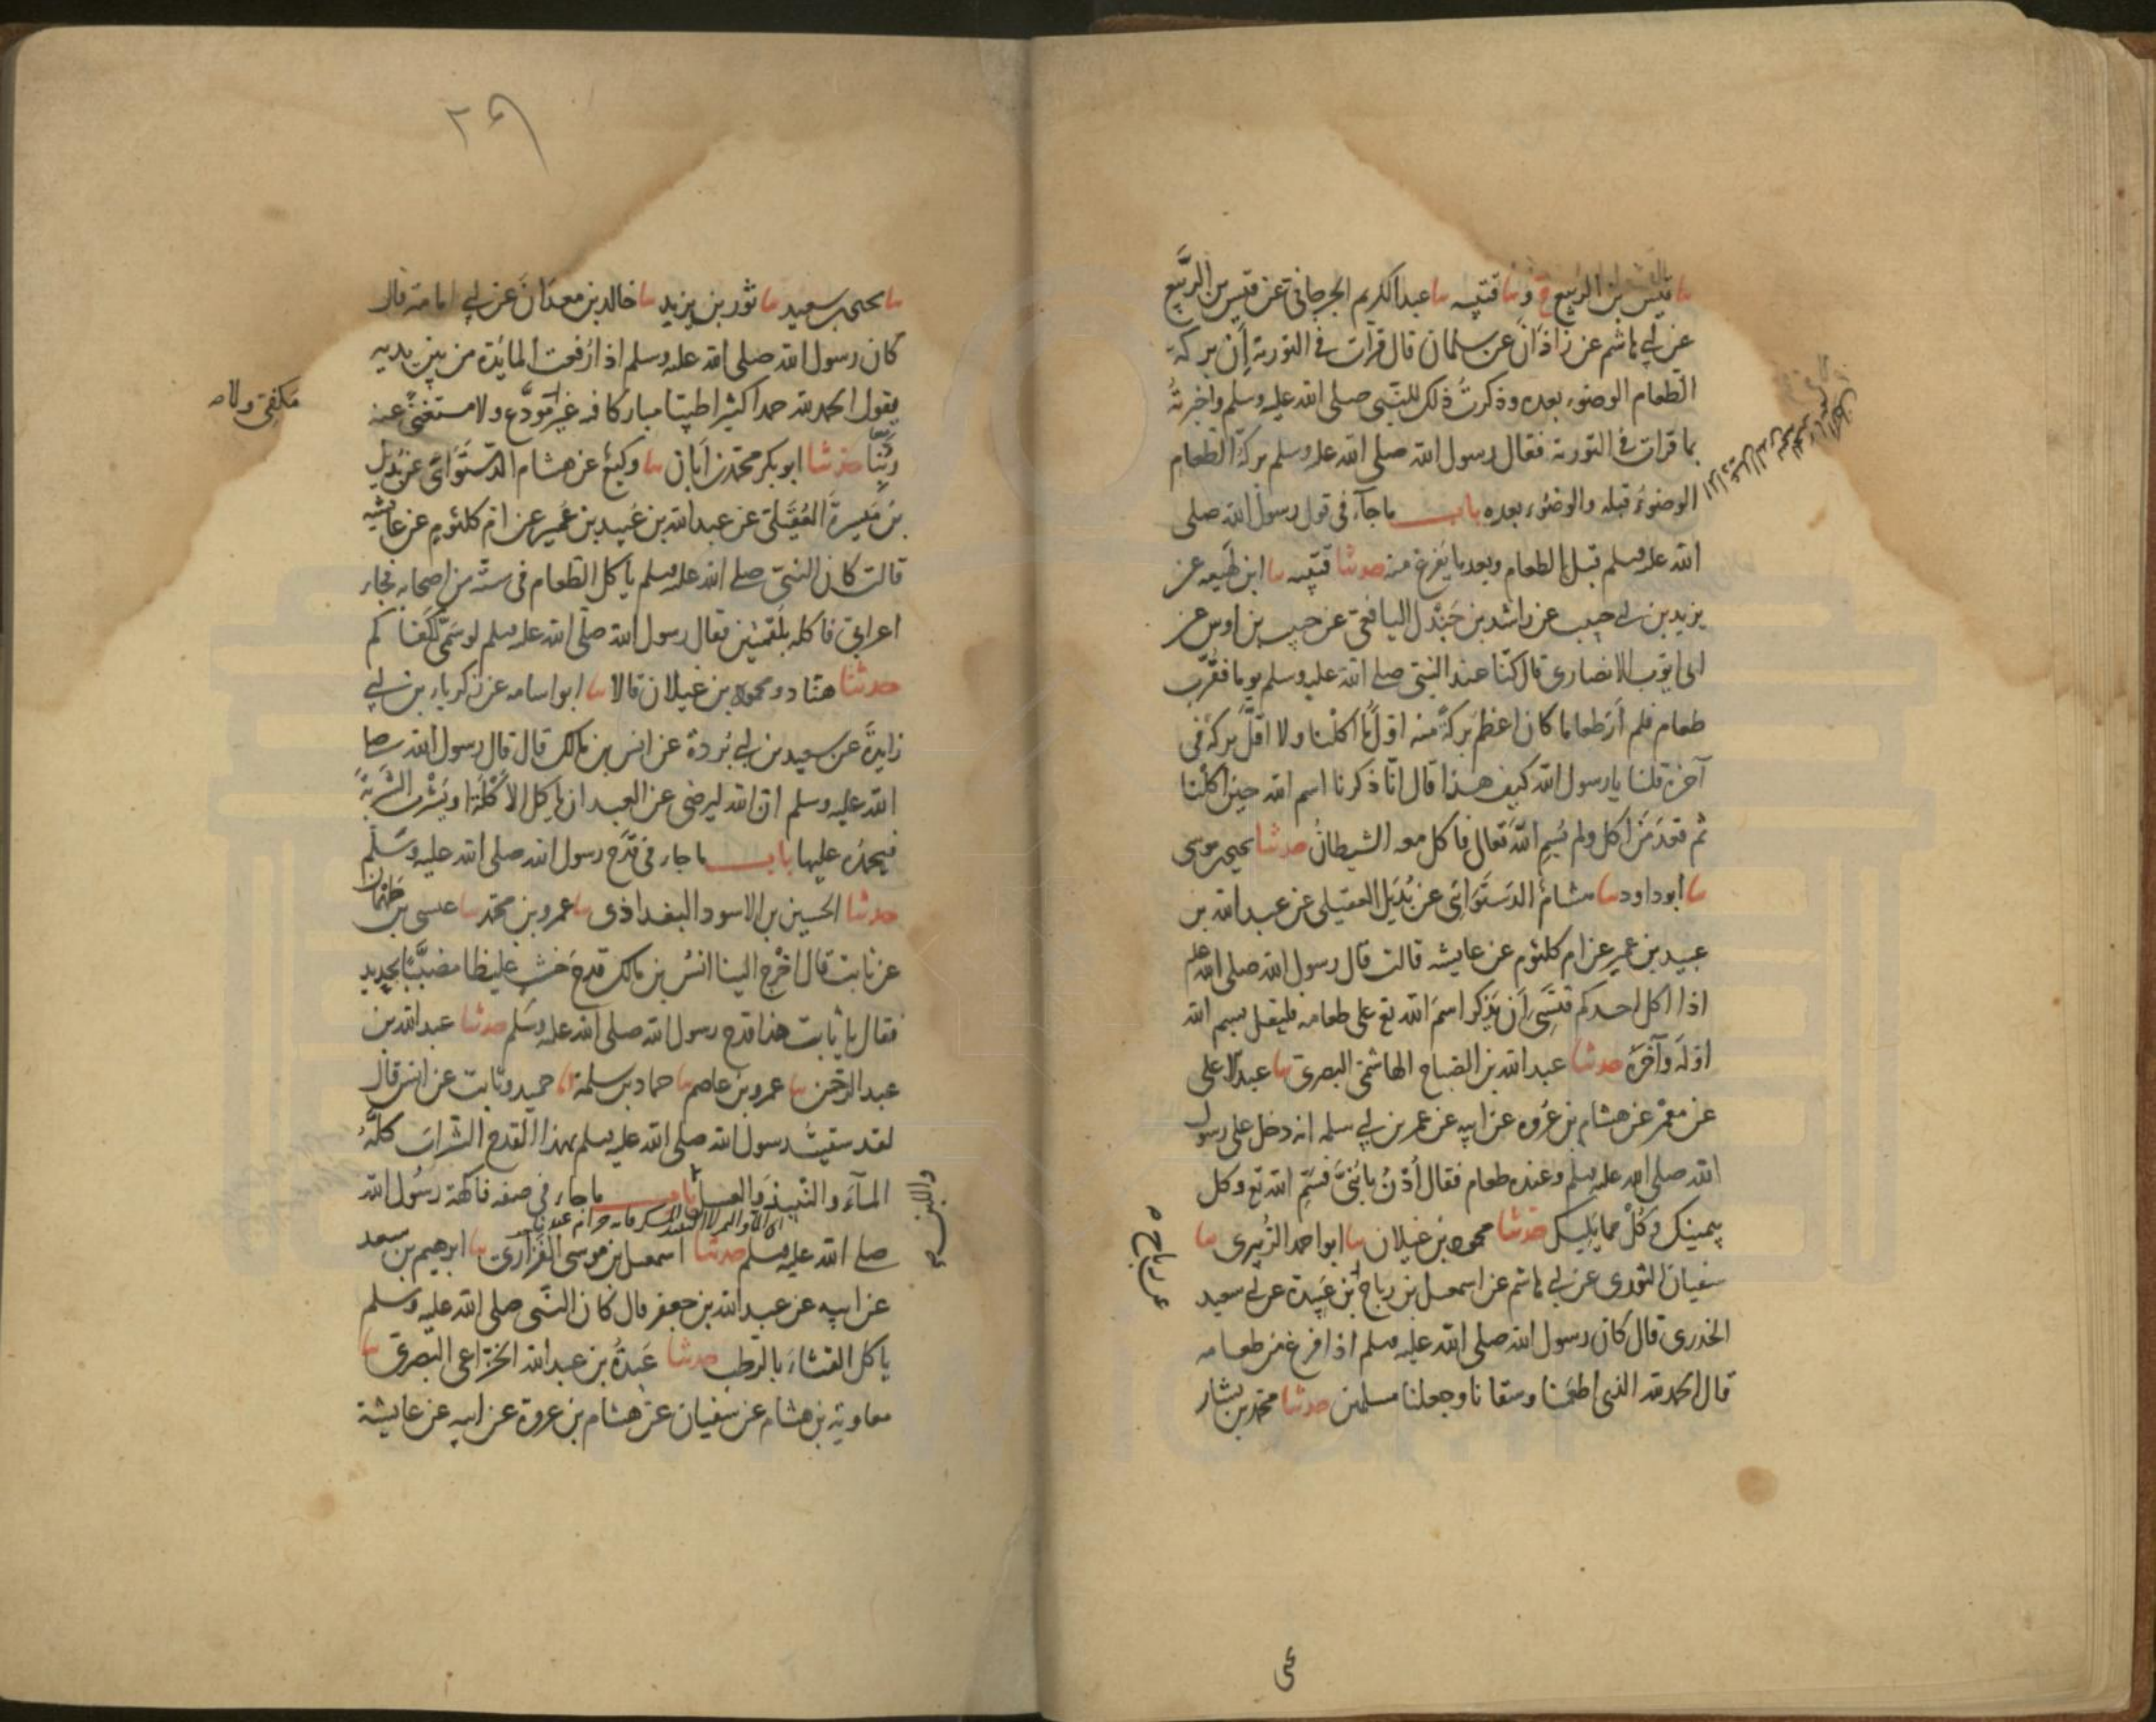 ثنا قيس بن الربيع ح وثنا قتيبه ثنا عبد الكريم الجرجاني عن قيس بن الربيع
عن ابي هاشم عن زاذان عن سلمان قال قرات في التورية ان بركة
الطعام الوضوء بعده وذكرت ذلك للنبي صلى الله عليه وسلم واخبرته
بما قرات في التورية فقال رسول الله صلى الله عليه وسلم بركة الطعام
الوضوء قبله والوضوء بعده باب ما جآء في قول رسول الله صلى
الله عليه وسلم قبل الطعام وبعد ما يفرغ منه حدثنا قتيبه ثنا ابن لهيعه عن
يزيد بن ابي حبيب عن راشد بن جندل اليافعي عن حبيب بن اوس عن
ابى ايوب الانصاري قال كنا عند النبي صلى الله عليه وسلم يوما فقرب
طعام فلم ار طعاما كان اعظم بركة منه اول ما اكلنا ولا اقل بركة في
آخره قلنا يا رسول الله كيف هذا قال انا ذكرنا اسم الله حين اكلنا
ثم قعد من اكل ولم يسم الله تعالى فاكل معه الشيطان حدثنا يحيى بن موسى
ثنا ابو داود ثنا هشام الدستوائي عن بديل العقيلي عن عبد الله بن
عبيد بن عمير عن ام كلثوم عن عايشه قالت قال رسول الله صلى الله عليه
اذا اكل احدكم فنسي ان يذكر اسم الله تع على طعامه فليقل بسم الله
اوله وآخره حدثنا عبد الله بن الصباح الهاشمي البصري ثنا عبد الاعلى
عن معمر عن هشام بن عروه عن ابيه عن عمر بن ابي سلمه انه دخل على رسول
الله صلى الله عليه وسلم وعنده طعام فقال ادن يا بني فسم الله تع وكل
بيمينك وكل مما يليك حدثنا محمود بن غيلان ثنا ابو احمد الزبيري ثنا
سفيان الثوري عن ابي هاشم عن اسمعيل بن رباح بن عبيدة عن ابي سعيد
الخدري قال كان رسول الله صلى الله عليه وسلم اذا فرغ من طعامه
قال الحمد لله الذي اطعمنا وسقانا وجعلنا مسلمين حدثنا محمد بن بشار
عن رباح
٢٩
ثنا يحيى بن سعيد ثنا ثور بن يزيد ثنا خالد بن معدان عن ابي امامة قال
كان رسول الله صلى الله عليه وسلم اذا رفعت المائدة من بين يديه
يقول الحمد لله حمدا كثيرا طيبا مباركا فيه غير مودع ولا مستغنى عنه
مكفي ولا
ربنا حدثنا ابو بكر محمد بن ابان ثنا وكيع عن هشام الدستوائي عن بديل
بن ميسرة العقيلي عن عبد الله بن عبيد بن عمير عن ام كلثوم عن عايشه
قالت كان النبي صلى الله عليه وسلم ياكل الطعام في ستة من اصحابه فجاء
اعرابي فاكله بلقمتين فقال رسول الله صلى الله عليه وسلم لو سمى لكفاكم
حدثنا هناد ومحمود بن غيلان قالا ثنا ابو اسامه عن زكرياء بن ابي
زايدة عن سعيد بن ابي بردة عن انس بن مالك قال قال رسول الله صلى
الله عليه وسلم ان الله ليرضى عن العبد ان ياكل الاكلة او يشرب الشربة
فيحمده عليها باب ما جاء في قدح رسول الله صلى الله عليه وسلم
حدثنا الحسين بن الاسود البغداذي ثنا عمرو بن محمد ثنا عيسى بن طهمان
عن ثابت قال اخرج الينا انس بن مالك قدح خشب غليظا مضببا بحديد
فقال يا ثابت هذا قدح رسول الله صلى الله عليه وسلم حدثنا عبد الله بن
عبد الرحمن ثنا عمرو بن عاصم ثنا حماد بن سلمة انا حميد وثابت عن انس قال
لقد سقيت رسول الله صلى الله عليه وسلم بهذا القدح الشراب كله
المآء والنبيذ والعسل باب ما جاء في صفه فاكهة رسول الله
واللبن
صلى الله عليه وسلم حدثنا اسمعيل بن موسى الفزاري ثنا ابرهيم بن سعد
عن ابيه عن عبد الله بن جعفر قال كان النبي صلى الله عليه وسلم
ياكل القثاء بالرطب حدثنا عبدة بن عبد الله الخزاعي البصري ثنا
معاوية بن هشام عن سفيان عن هشام بن عروة عن ابيه عن عايشة